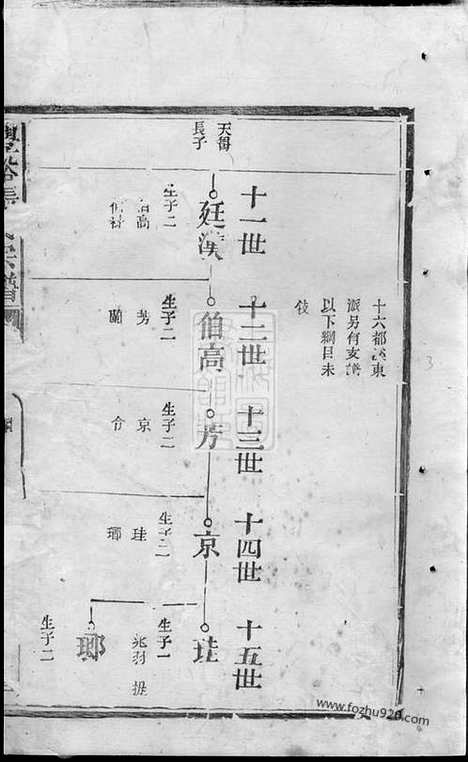 十六都 東
派另有 譜
以下綱目未
十一世
十二世
十三世
十四世
十五世
天衢
長子
廷漢
生子二
伯高
伯
伯高
生子二
芳
蘭
芳
生子二
京
令
京
生子二
珪
瑯
珪
生子一
兆羽
瑯
生子二
宗譜
www.fozhu920.com